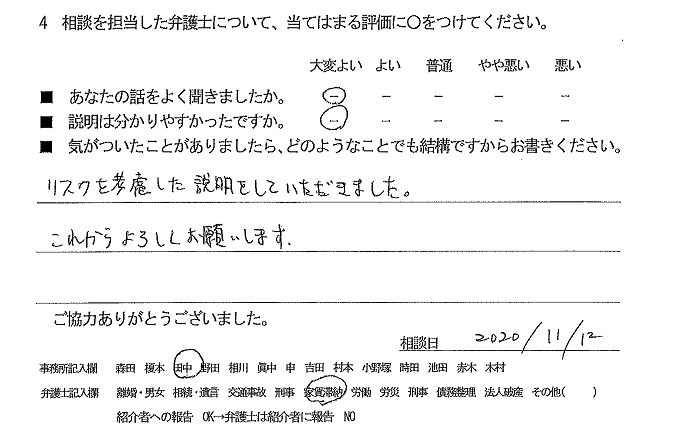 4 相談を担当した弁護士について、当てはまる評価に○をつけてください。
大変よい よい 普通 やや悪い 悪い
■ あなたの話をよく聞きましたか。 － － － － －
■ 説明は分かりやすかったですか。 － － － － －
■ 気がついたことがありましたら、どのようなことでも結構ですからお書きください。
リスクを考慮した説明をしていただきました。
これからよろしくお願いします.
ご協力ありがとうございました。
相談日 2020/11/12
事務所記入欄 森田 榎本 田中 野田 相川 眞中 申 吉田 村本 小野塚 時田 池田 赤木 木村
弁護士記入欄 離婚・男女 相続・遺言 交通事故 刑事 家賃滞納 労働 労災 刑事 債務整理 法人破産 その他( )
紹介者への報告 OK→弁護士は紹介者に報告 NO